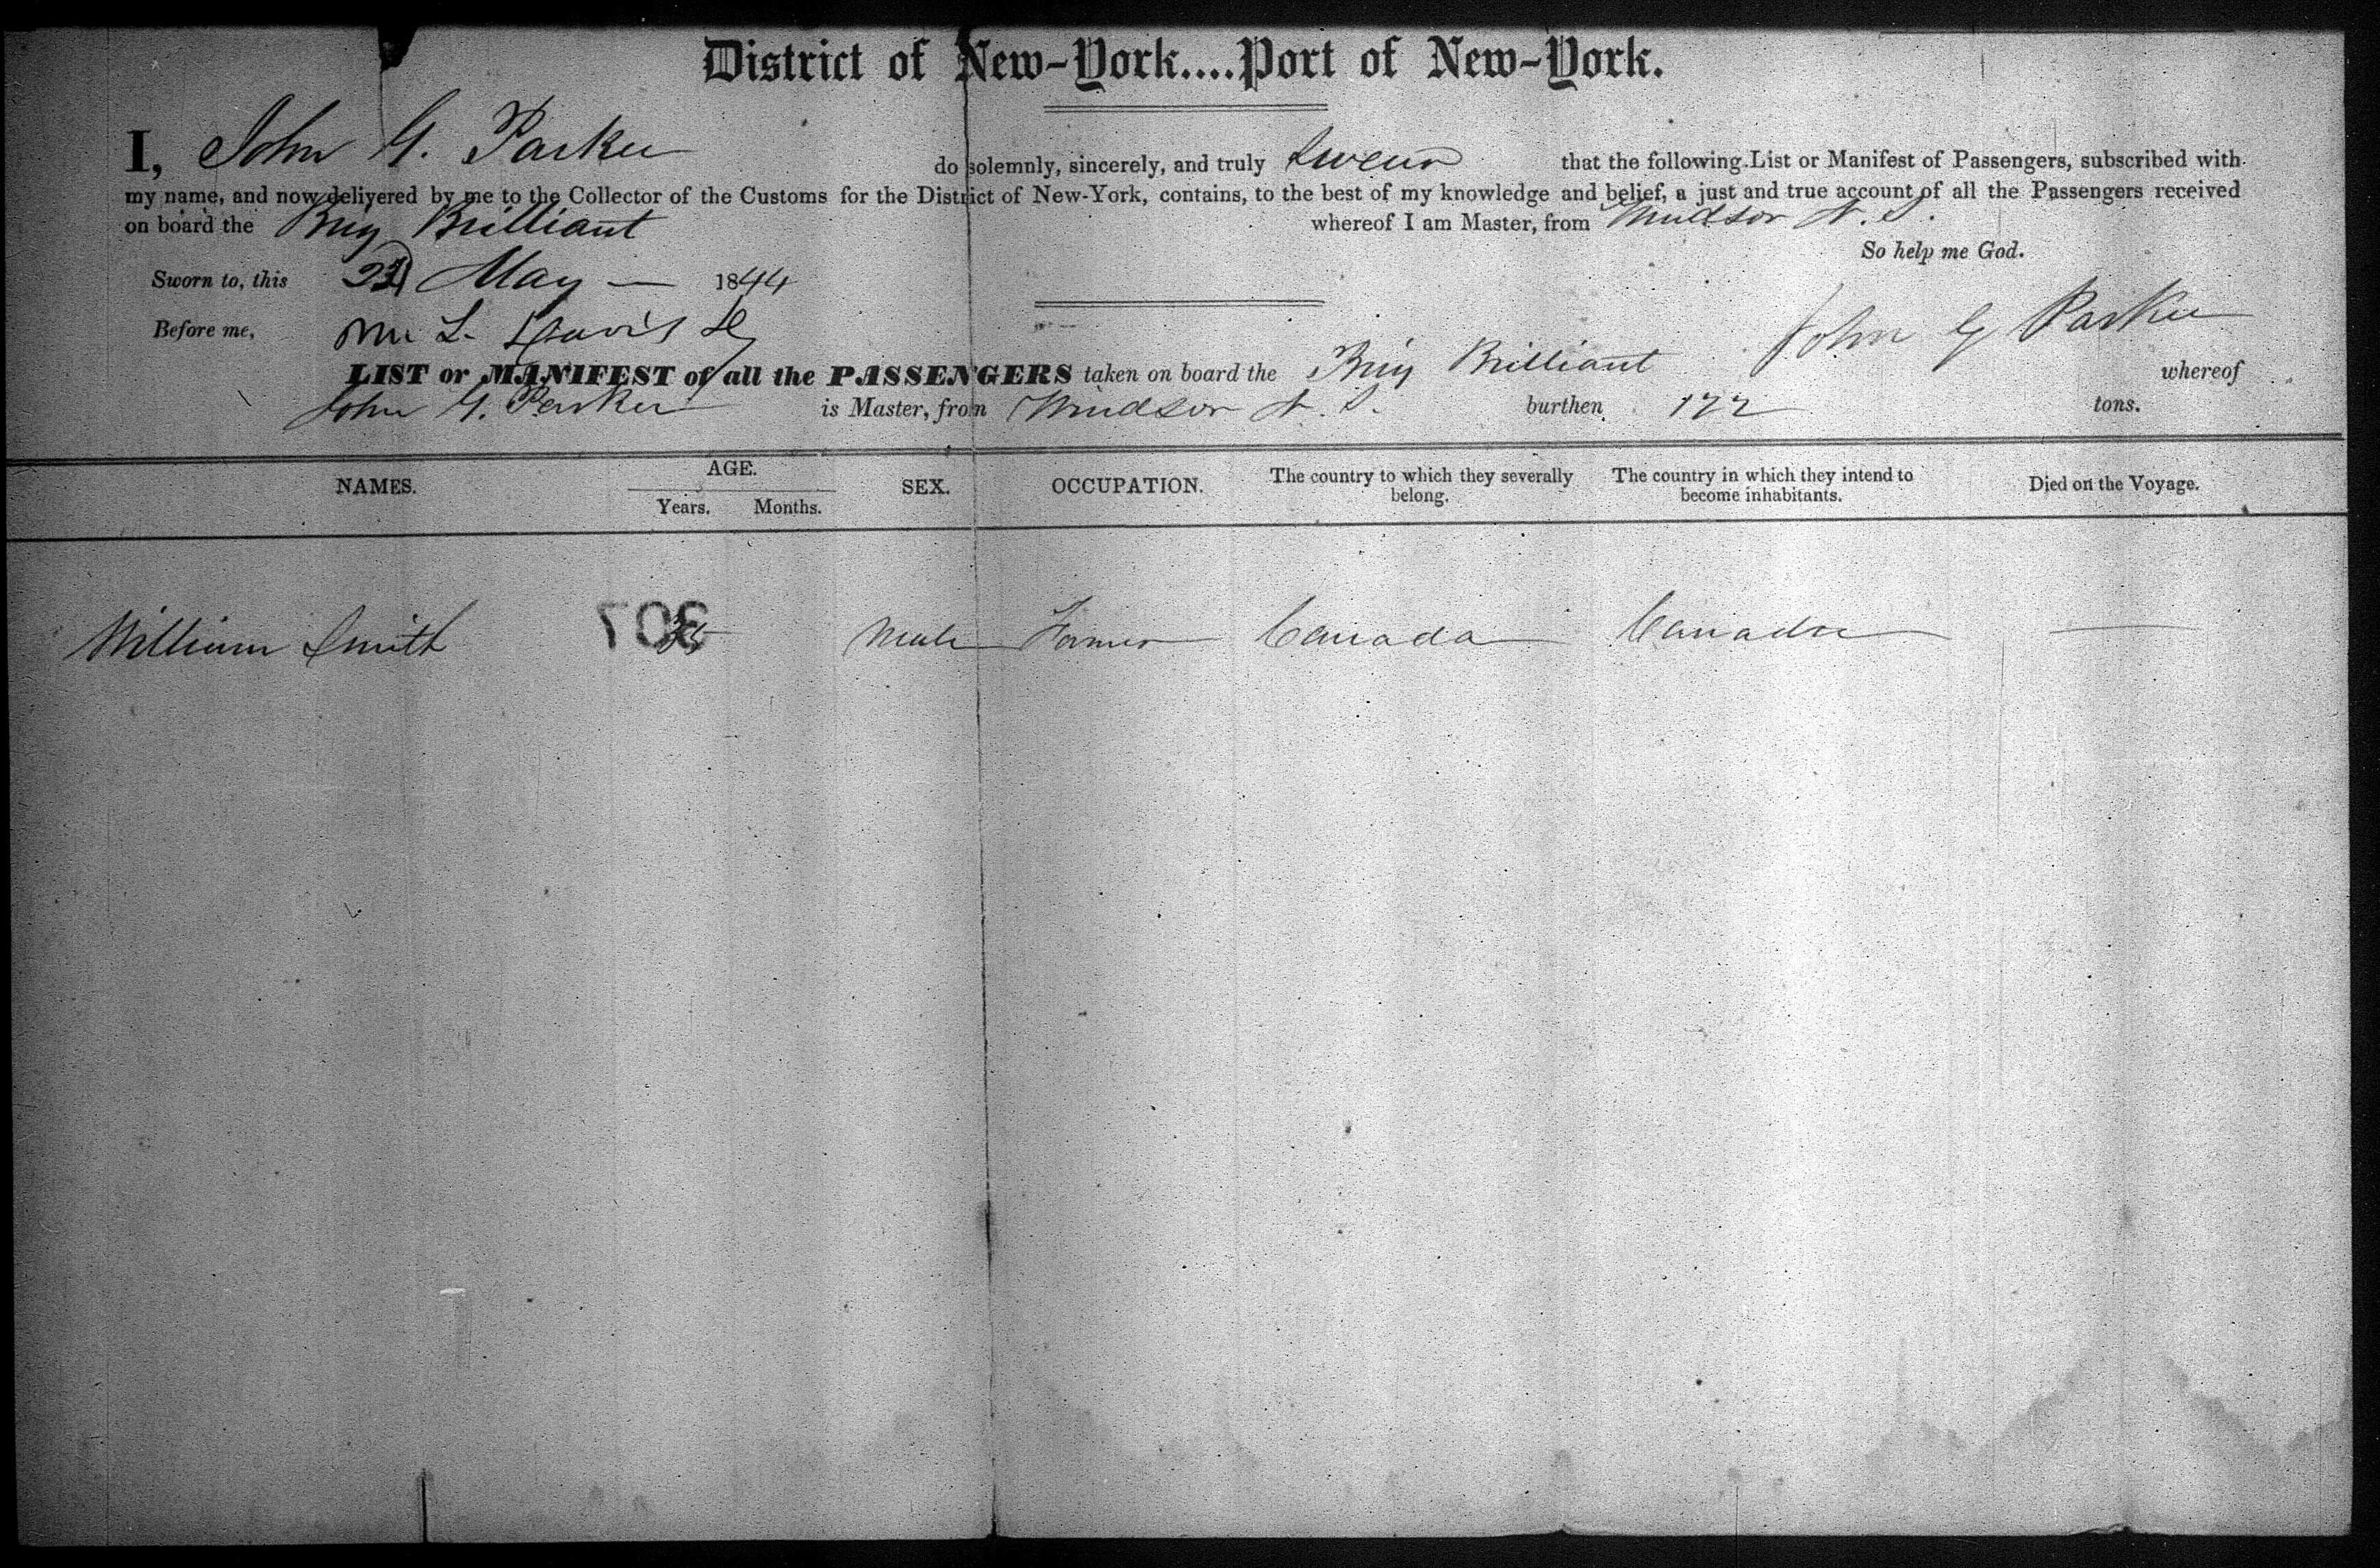 District of New-York....Port of New-York.
I, John G. Parker do solemnly, sincerely, and truly swear that the following List or Manifest of Passengers, subscribed with
my name, and now delivered by me to the Collector of the Customs for the District of New-York, contains, to the best of my knowledge and belief, a just and true account of all the Passengers received
on board the Brig Brilliant whereof I am Master, from Windsor N. S.
So help me God.
Sworn to, this May — 1844
Before me, L. Davis John G Parker
LIST or MANIFEST of all the PASSENGERS taken on board the Brig Brilliant whereof
John G. Parker is Master, from Windsor N. S. burthen 177 tons.
NAMES. AGE. Years. Months. SEX. OCCUPATION. The country to which they severally belong. The country in which they intend to become inhabitants. Died on the Voyage.
William Smith Male Farmer Canada Canada —
307